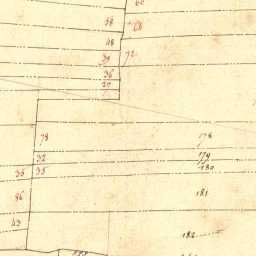 60
58
68
48
72
39
36
27
78
178
32
179
35
35
180
36
181
43
182